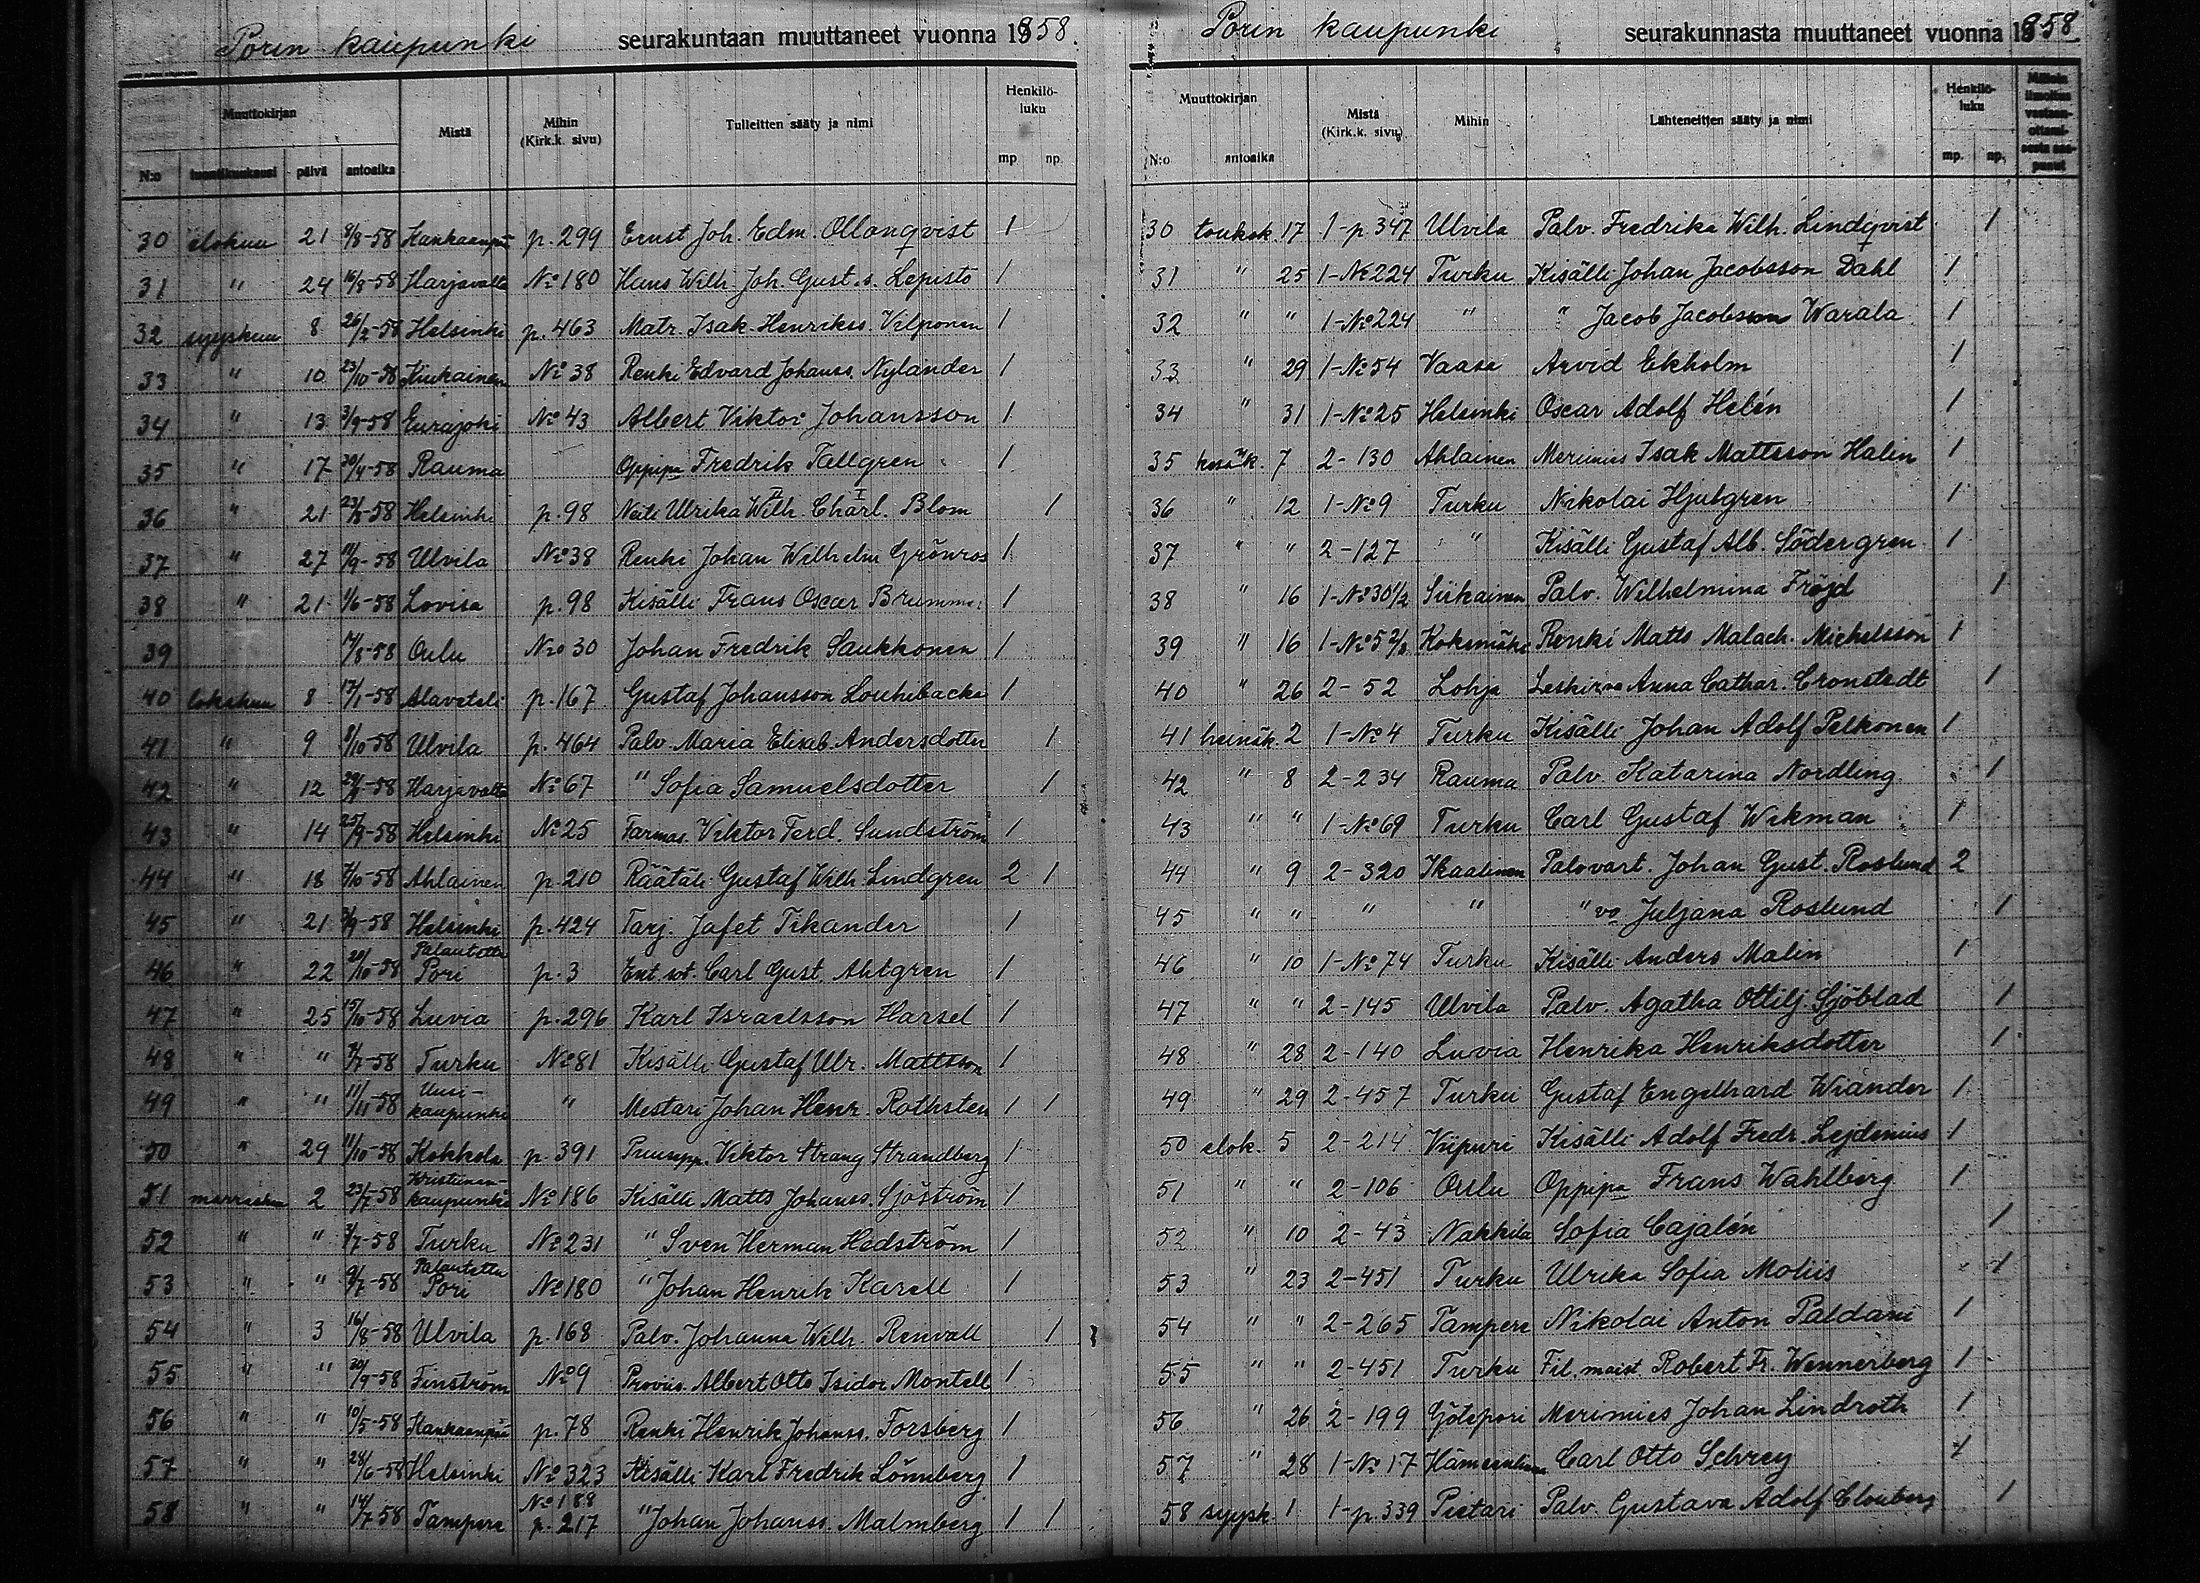 Porin kaupunki seurakuntaan muuttaneet vuonna 1858.
Muuttokirjan Mistä Mihin (Kirk.k. sivu) Tulleitten sääty ja nimi Henkilö-luku
N:o luontikuukausi päivä antoaika mp. np.
30 elokuu 21 8/8-58 Kankaanpää p. 299 Ernst Joh. Edm. Ollonqvist 1
31 " 24 16/8-58 Harjavalta No 180 Hans Wilh. Joh. Gust. s. Lepistö 1
32 syyskuu 8 26/2-58 Helsinki p. 463 Matr. Isak Henrikss. Vilponen 1
33 " 10 23/10-58 Kiukainen No 38 Renki Edvard Johanss. Nylander 1
34 " 13 3/9-58 Eurajoki No 43 Albert Viktor Johansson 1
35 " 17 30/4-58 Rauma Oppipa Fredrik Tallgren 1
36 " 21 23/8-58 Helsinki p. 98 Neiti Ulrika Wilh. II Charl. I Blom 1
37 " 27 11/9-58 Ulvila No 38 Renki Johan Wilhelm Grönros 1
38 " 21 1/6-58 Lovisa p. 98 Kisälli Frans Oscar Brummer 1
39 17/8-58 Oulu No 30 Johan Fredrik Saukkonen 1
40 lokakuu 8 13/1-58 Alaveteli p. 167 Gustaf Johansson Louhibacka 1
41 " 9 8/10-58 Ulvila p. 464 Palv. Maria Elisab. Andersdotter 1
42 " 12 -58 Harjavalta No 67 " Sofia Samuelsdotter 1
43 " 14 25/9-58 Helsinki No 25 Farmas. Viktor Ferd. Sundström 1
44 " 18 7/10-58 Ahlainen p. 210 Räätäli Gustaf Wilh. Lindgren 2 1
45 " 21 -58 Helsinki p. 424 Tarj. Jafet Tikander 1
46 " 22 20/10-58 Palautettu Pori p. 3 Ent. sot. Carl Gust. Ahlgren 1
47 " 25 15/10-58 Luvia p. 296 Karl Israelsson Harsel 1
48 " " -58 Turku No 81 Kisälli Gustaf Ulr. Mattsson 1
49 " " 11/11-58 Uusi-kaupunki " Mestari Johan Henr. Rothsten 1 1
50 " 29 11/10-58 Kokkola p. 391 Puusepp. Viktor Strang Strandberg 1
51 marraskuu 2 23/7-58 Kristiinan-kaupunki No 186 Kisälli Matts Johanss. Sjöström 1
52 " " 3/7-58 Turku No 231 " Sven Herman Hedström 1
53 " " 9/7-58 Palautettu Pori No 180 " Johan Henrik Karell 1
54 " 3 16/8-58 Ulvila p. 168 Palv. Johanna Wilh. Renvall 1
55 " " 30/9-58 Finström No 9 Proviis. Albert Otto Isidor Montell 1
56 " " 10/5-58 Kankaanpää p. 78 Renki Henrik Johanss. Forsberg 1
57 " " 28/6-58 Helsinki No 323 Kisälli Karl Fredrik Lönnberg 1
58 " " 14/7-58 Tampere No 188 p. 217 " Johan Johanss. Malmberg 1 1
Porin kaupunki seurakunnasta muuttaneet vuonna 1858
Muuttokirjan Mistä (Kirk.k. sivu) Mihin Lähteneitten sääty ja nimi Henkilö-luku Milloin ilmoitus vastaan-ottami-sesta saa-punut
N:o antoaika mp. np.
30 toukok. 17 1-p. 347 Ulvila Palv. Fredrika Wilh. Lindqvist 1
31 " 25 1-No 224 Turku Kisälli Johan Jacobsson Dahl 1
32 " " 1-No 224 " " Jacob Jacobsson Warala 1
33 " 29 1-No 54 Vaasa Arvid Ekholm 1
34 " 31 1-No 25 Helsinki Oscar Adolf Helén 1
35 kesäk. 7 2-130 Ahlainen Merimies Isak Mattsson Halin 1
36 " 12 1-No 9 Turku Nikolai Hjulgren 1
37 " " 2-127 " Kisälli Gustaf Alb. Södergren 1
38 " 16 1-No 30 1/2 Siikainen Palv. Wilhelmina Fröjd 1
39 " 16 1-No 52/2 Kokemäki Renki Matts Malach. Michelsson 1
40 " 26 2-52 Lohja Leskirva Anna Cathar. Cronstedt 1
41 heinäk. 2 1-No 4 Turku Kisälli Johan Adolf Pelkonen 1
42 " 8 2-234 Rauma Palv. Katarina Nordling 1
43 " " 1-No 69 Turku Carl Gustaf Wikman 1
44 " 9 2-320 Ikaalinen Palovart. Johan Gust. Roslund 2
45 " " " " " vo Juljana Roslund 1
46 " 10 1-No 74 Turku Kisälli Anders Malin 1
47 " " 2-145 Ulvila Palv. Agatha Ottilj. Sjöblad 1
48 " 28 2-140 Luvia Henrika Henriksdotter 1
49 " 29 2-457 Turku Gustaf Engelhard Wiander 1
50 elok. 5 2-214 Viipuri Kisälli Adolf Fredr. Lejdenius 1
51 " " 2-106 Oulu Oppipa Frans Wahlberg 1
52 " 10 2-43 Nakkila Sofia Cajalén 1
53 " 23 2-451 Turku Ulrika Sofia Moliis 1
54 " " 2-265 Tampere Nikolai Anton Paldani 1
55 " " 2-451 Turku Fil. maist. Robert Fr. Wennerberg 1
56 " 26 2-199 Götepori Merimies Johan Lindroth 1
57 " 28 1-No 17 Hämeenlinna Carl Otto Schrey 1
58 syysk. 1 1-p. 339 Pietari Palv. Gustava Adolf. Clouberg 1